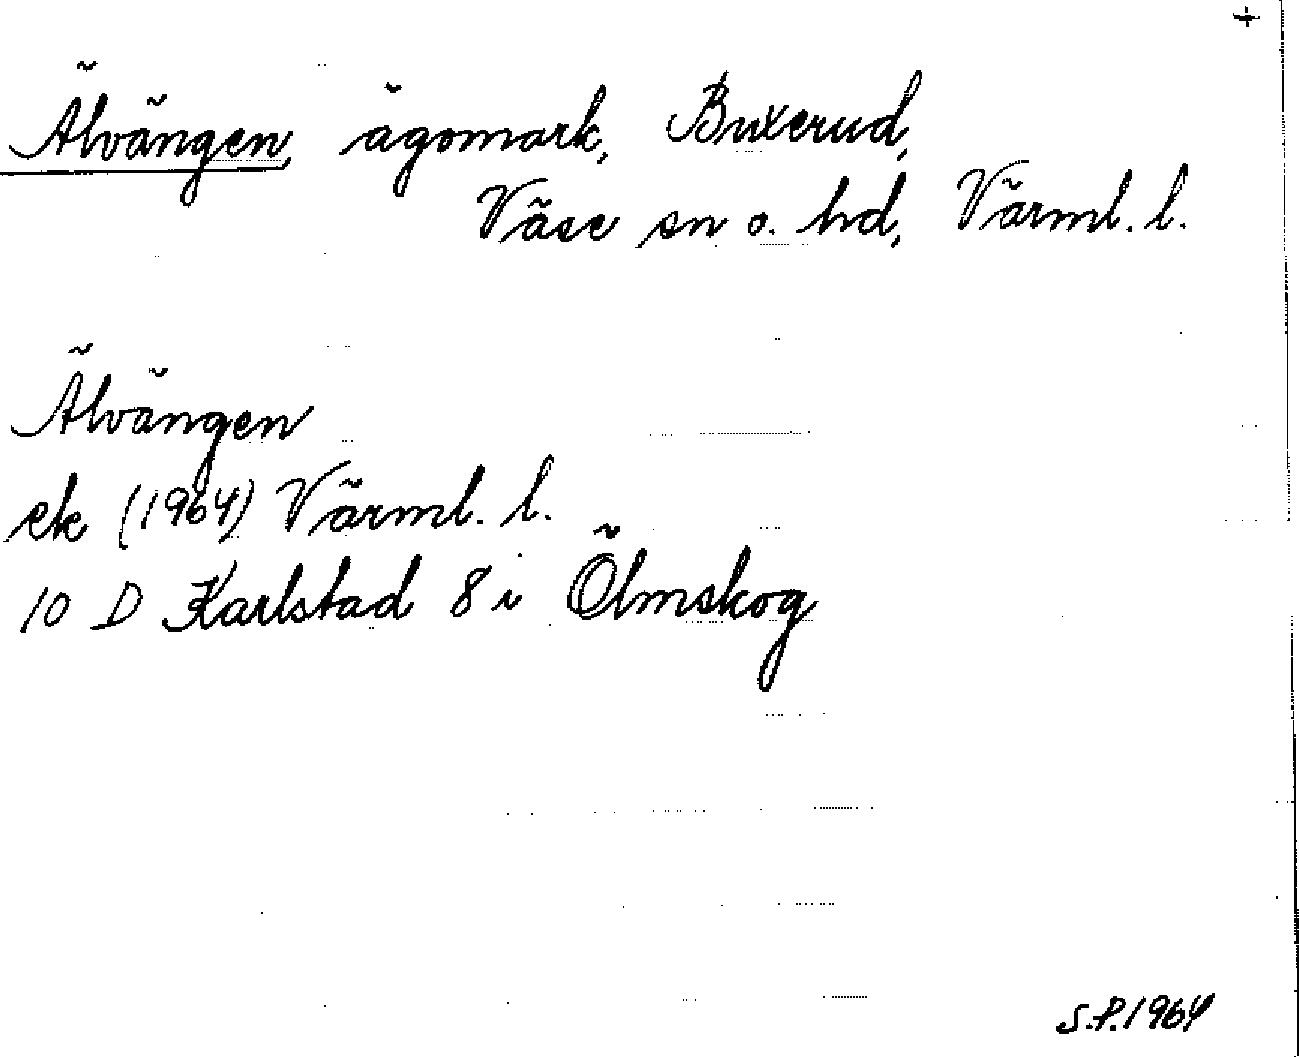 +
Älvängen, ägomark, Buxerud,
Väse sn o. hd, Värml. l.
Älvängen
ek (1964) Värml. l.
10 D Karlstad 8 i Ölmskog
S.P. 1964